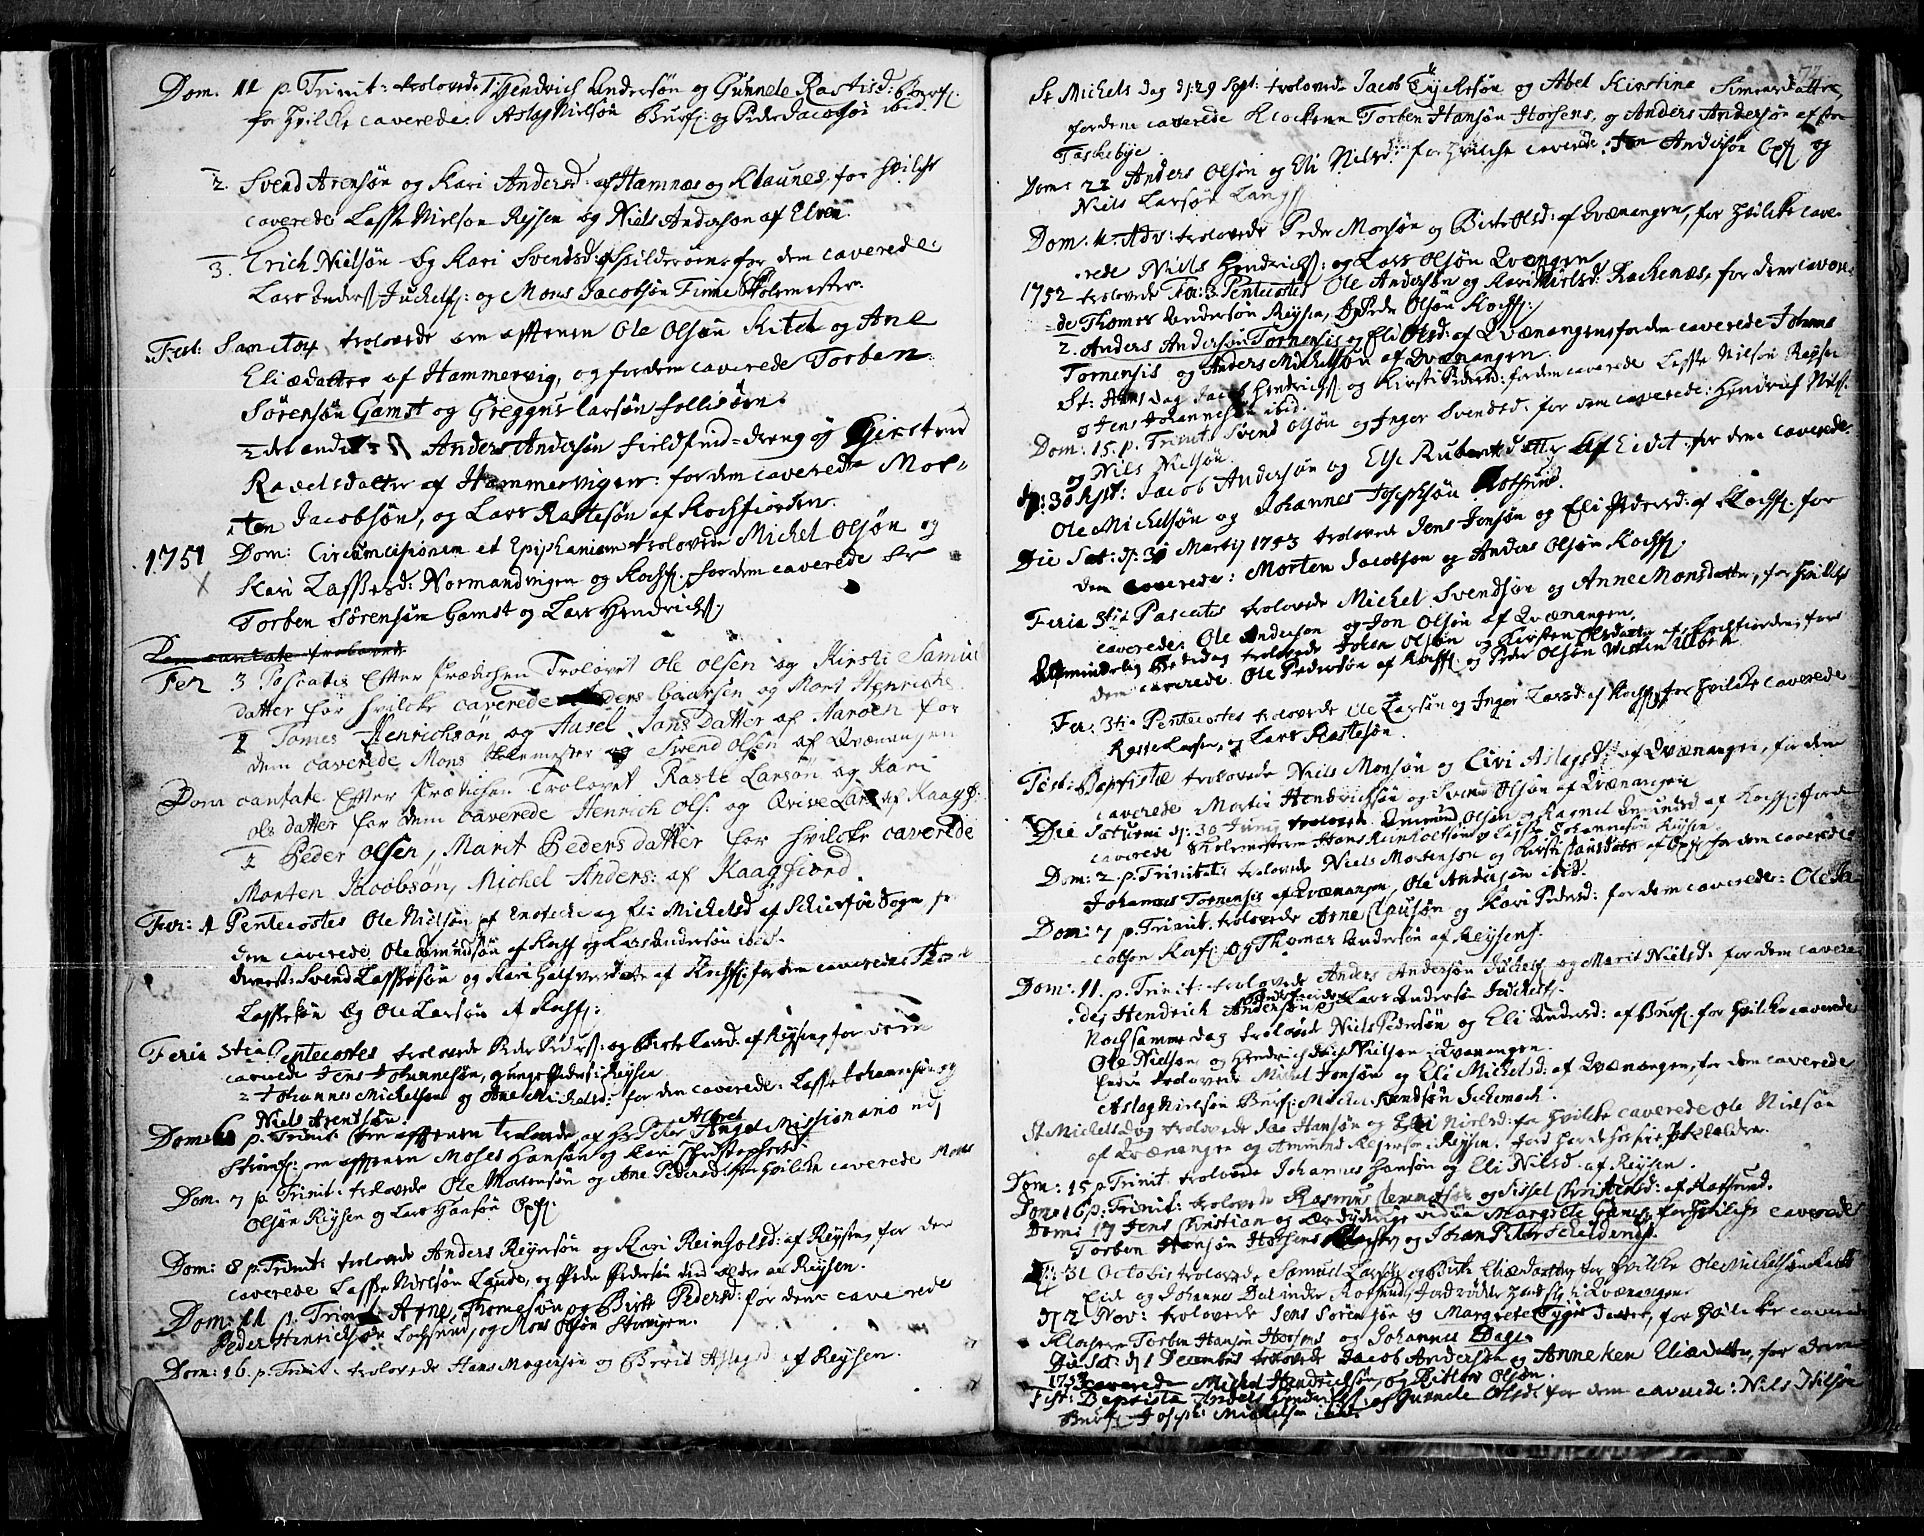 Dom. 11 p. Trinit: trolovede Hendrich Andersøn og Gunnele Rastisd: Burfj:
for hvilke caverede. Aslag Nielsøn Burfj: og Peder Jacobsøn ibid.
2. Svend Arensøn og Kari Andersd: af Hamnæs og Klaunes, for hvilke
caverede Lasse Nielsøn Reysen og Niels Andersøn af Elven.
3. Erich Nielsøn og Kari Svendsd: af Spilderøen for dem caverede
Lars Anders: Juchelfj: og Mons Jacobsøn Finne Skolemester.
Fest: Sanctor trolovede om afftenen Ole Olsøn Kitel og Ane
Eliædatter af Hammervig, og for dem caverede Torben
Sørensøn Gamst og Greggus Larsøn Follisøen.
2 Anders Andersøn Fieldfind-dreng og Giertrud
Ravelsdatter af Hammervigen: for dem caverede Mor-
ten Jacobsøn, og Lars Rastesøn af Kochfiorden.
1751 Dom: Circumcisionem et Epiphaniam trolovede Michel Olsøn og
Kari Lassesd: Normandvigen og Kochfj: for dem caverede Sr
Torben Sørensøn Gamst og Lars Hendrichs:
Dom cantate trolovede
Fer 3 Pascatis Efter Prædichen Trolovet Ole Olsen og Kirsti Samu
datter for hvilcke caverede Anders Gaarsen og Mons Henrichs
2 Tomes Henrichsøn og Axsel Jons Datter af Aaroen for
dem caverede Mons Skolemester og Svend Olsen af Qvænangen
Dom cantate Efter Prædichen Trolovet Raste Larsøn og Kari
Ols datter for dem caverede Henrich Ols: og Qrive Lars: af Kaagfj:
2 Peder Olsen, Marit Peders datter for hvilcke caverede
Morten Jacobsøn, Michel Anders: af Kaagfiord.
Fer: 1 Pentecostes Ole Nielsøn af Enotechi og Eli Michelsd af Schierfvø Sogn for
dem caverede Ole Amundsøn af Kochfj og Lars Andersøn ibid.
dernest: Svend Lassesøn og Kari Halfversdatter af Kochfj: for dem caverede Tho
Lassesøn og Ole Larsøn af Kochfj:
Feria 3tia Pentecostes trolovede Peder Peders: og Birte Larsd: af Reysen, for dem
caverede Jens Johannesøn, og unge Peders: i Reysen
2 Johannes Michelsøn og Ane Michelsd: for dem caverede: Lasse Johannesøn og
Niels Arentsøn.
Dom: 6 p. Trinit: om afftenen trolovede, af Hr Peter Albret Angel Missionario udj
Strømfj: om afftenen Moses Hansøn og Karen Christophersd:
Dom. 7 p. Trinit: trolovede Ole Mortensøn og Ane Pedersd: for hvilcke caverede Mons
Olsøn Reysen og Lars Hansøn Oxfj:
Dom: 8 p. Trinit: trolovede Anders Reyersøn og Kari Reinholsd: af Reysen, for dem
caverede Lasse Nielsøn Laude, og Peder Pedersøn den ældre af Reysen.
Dom: 11 p. Trinit Arne Thomesøn og Birte Pedersd: for dem caverede
Peder Henrichsøn Lochsund, og Mons Olsøn Storvigen.
Dom: 16. p. Trinit: trolovede Hans Mogensøn og Berit Aslagsd af Reysen.
72
St. Michels dag d: 29 Sept: trolovede Jacob Tyckesøn og Abel Kirstine Simensdatter,
for dem caverede Klockeren Torben Hansøn Horsens, og Anders Andersøn af
Taskebye.
Dom: 22 Anders Olsøn og Eli Nielsd: for hvilche caverede: Jon Andersøn Oxfj og
Niels Larsøn Langfj
Dom: 4. Adv: trolovede Peder Monsøn og Birte Olsd: af Qvænangen, for hvilcke cave-
rede Niels Hendrichs: og Lars Olsøn Qvængen
1752 trolovede Fer: 3 Pentecostes Ole Andersøn og Kari Nielsd: Kackenæs, for dem cavere-
de Thomes Andersøn Reysen, og Peder Olsøn Kochfj:
2. Anders Andersøn Tornensis og Eli Olsd: af Qvænangen, for dem caverede Johannes
Tornensis og Anders Michelsøn af Qvænangen.
St: Hans dag Jacob Hendrichs: og Kirsti Pedersd: for dem caverede Lasse Nielsøn Reysen
og Jens Johannesøn ibid.
Dom: 15. p. Trinit: Svend Olsøn og Inger Svendsd: for dem caverede: Hendrich Niels:
og Nils Nielsøn.
d: 30 Sept: Jacob Andersøn og Else Rubertsdatter af Eidet: for dem caverede
Ole Michelsøn og Johannes Josephsøn Rotsund.
Die Sat: d: 31 Martij 1753 trolovede Jens Jonsøn og Eli Pedersd: af Kochfj: for
dem caverede: Morten Jacobsøn og Anders Olsøn Kochfj:
Feria 3tia Pascatis trolovede Michel Svendsøn og Anne Monsdatter, for hvilke
caverede: Ole Andersøn og Jon Olsøn af Qvænangen.
Almindelig Bededag trolovede Johan Olsøn og Kirsten Olsdatter af Kochfiorden, for
dem caverede Ole Pedersøn af Kochfj: og Peder Olsøn Vesten Uløen.
Fer: 3tia Pentecostes trolovede Ole Larsøn og Inger Larsd: af Kochfj: for hvilke caverede
Raste Larsøn, og Lars Rastesøn.
Fest: Baptistæ trolovede Niels Monsøn og Livi Aslagsd: af Qvænangen, for dem
caverede Morten Hendrichsøn og Svend Olsøn af Qvænangen
Die Saturni d: 30 Junij trolovede Amund Olsøn og Ragnel Amundsd af Kochfj: for dem
caverede Skolemesteren Hans Reinholtsøn og Lasse Johannesøn Reysen.
Dom: 2 p. Trinitatis trolovede Niels Mortensøn og Kirsti Hansdatter af Oxfj for dem caverede
Johannes Tornensis af Qvænangen, Ole Andersøn ibid.
Dom: 7 p. Trinit. trolovede Arne Clausøn og Kari Pedersd: for dem caverede: Ole Ja-
cobsøn Kaafj: og Thomas Andersøn af Reysen.
Dom: 11. p. Trinit: trolovede Anders Andersøn Juchelfj og Marit Nielsd: for dem cavere-
dej Hendrich Andersøn og Lars Andersøn Juchelfj.
Noch samme dag trolovede Niels Pedersøn og Eli Andersd: af Burfj. for hvilke caverede
Ole Nielsøn og Hendrich Nielsøn i Qvænangen.
Endu trolovede Michel Jonsøn og Eli Michelsd: af Qvænangen, for dem caverede
Aslag Nielsøn Burfj: Michel Svendsøn Schemoch.
St Michelsdag trolovede Ole Hansøn og Eli Nielsd: for hvilcke caverede Ole Nielsøn
af Qvænangen og Amund i Reysen.
Dom: 15 p Trinit trolovede Johannes Hansøn og Eli Nilsd. af Reysen.
Dom: 16 p: Trinit: trolovede Rasmus Clemetsøn og Sissel Christensd: af Rotsund.
Dom: 17 Jens Christian og ærdydige vidue Margrete Gamst for hvilche caverede
Torben Hansøn Horsens Klocher og Johan Peter Schildener.
d: 31 Octobris trolovede Samuel Larsøn og Birte Eliædatter, for hvilke Ole Michelsøn
Eid og Johannes Rotsund,
d: 2 Nov: trolovede Jens Sørensøn og Margrete datter, for hvilcke caverede
Klocheren Torben Hansøn Horsens og Johannes Dage.
Die Sat: d: 1 Decembris trolovede Jacob Andersøn og Anneken Eliædatter, for dem
1753 caverede Michel Hendrichsøn, og Olsøn.
Fest: Baptista Anders Henders: og Gunnele Olsd: for dem caverede: Nils Nilsøn
Burfj Joseph Michelsøn ibid.